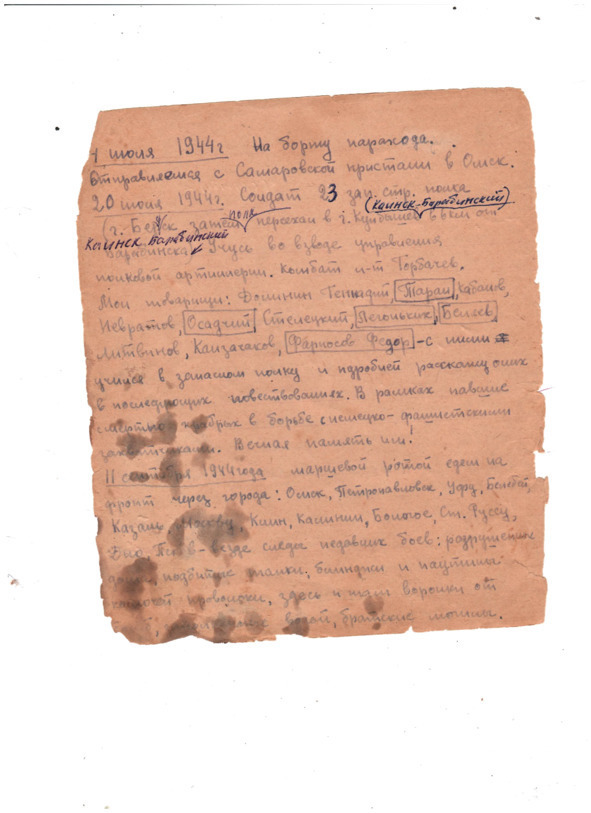 1 июня 1944г На борту парахода.
Отправляемся с Самаровской пристани в Омск.
20 июня 1944г. Солдат 23 зап. стр. полка
(Каинск-Барабинский)
(г. Бердск затем полк переехал в г. Куйбышев в км от
Каинск Барабинский
Барабинска. Учусь во взводе управления
полковой артиллерии. Комбат л-т Горбачев.
Мои товарищи: Фомин Геннадий, Таран, Кабашев,
Невратов, Осадчий Стелецкий, Легоньких, Беляев,
Литвинов, Канзачаков, Фарносов Федор - с ними
учимся в запасном полку и подробней расскажу о них
в последующих повествованиях. В рамках павшие
смертью храбрых в борьбе с немецко-фашистскими
захватчиками. Вечная память им.
11 сентября 1944 года маршевой ротой едем на
фронт через города: Омск, Петропавловск, Уфу, Белебей,
Казань, Москву, Клин, Калинин, Бологое, Ст. Руссу,
Псков - везде следы недавних боев: разрушенные
дома, подбитые танки, блиндажи и паутина
колючей проволоки, здесь и там воронки от
водой, братские могилы.